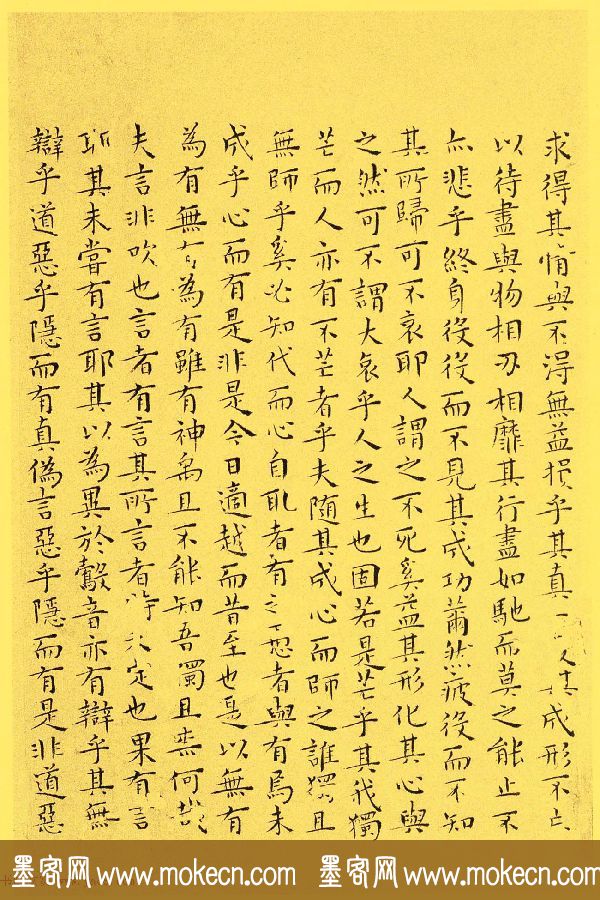 求得其情與不得無益損乎其真其成形不亡
以待盡與物相刃相靡其行盡如馳而莫之能止不
亦悲乎終身役役而不見其成功薾然疲役而不知
其所歸可不哀耶人謂之不死奚益其形化其心與
之然可不謂大哀乎人之生也固若是芒乎其我獨
芒而人亦有不芒者乎夫隨其成心而師之誰獨且
無師乎奚必知代而心自取者有之愚者與有焉未
成乎心而有是非是今日適越而昔至也是以無有
為有無有為有雖有神禹且不能知吾獨且柰何哉
夫言非吹也言者有言其所言者特未定也果有言
耶其未嘗有言耶其以為異於鷇音亦有辯乎其無
辯乎道惡乎隱而有真偽言惡乎隱而有是非道惡
墨客网 www.mokecn.com 墨客网 www.mokecn.com